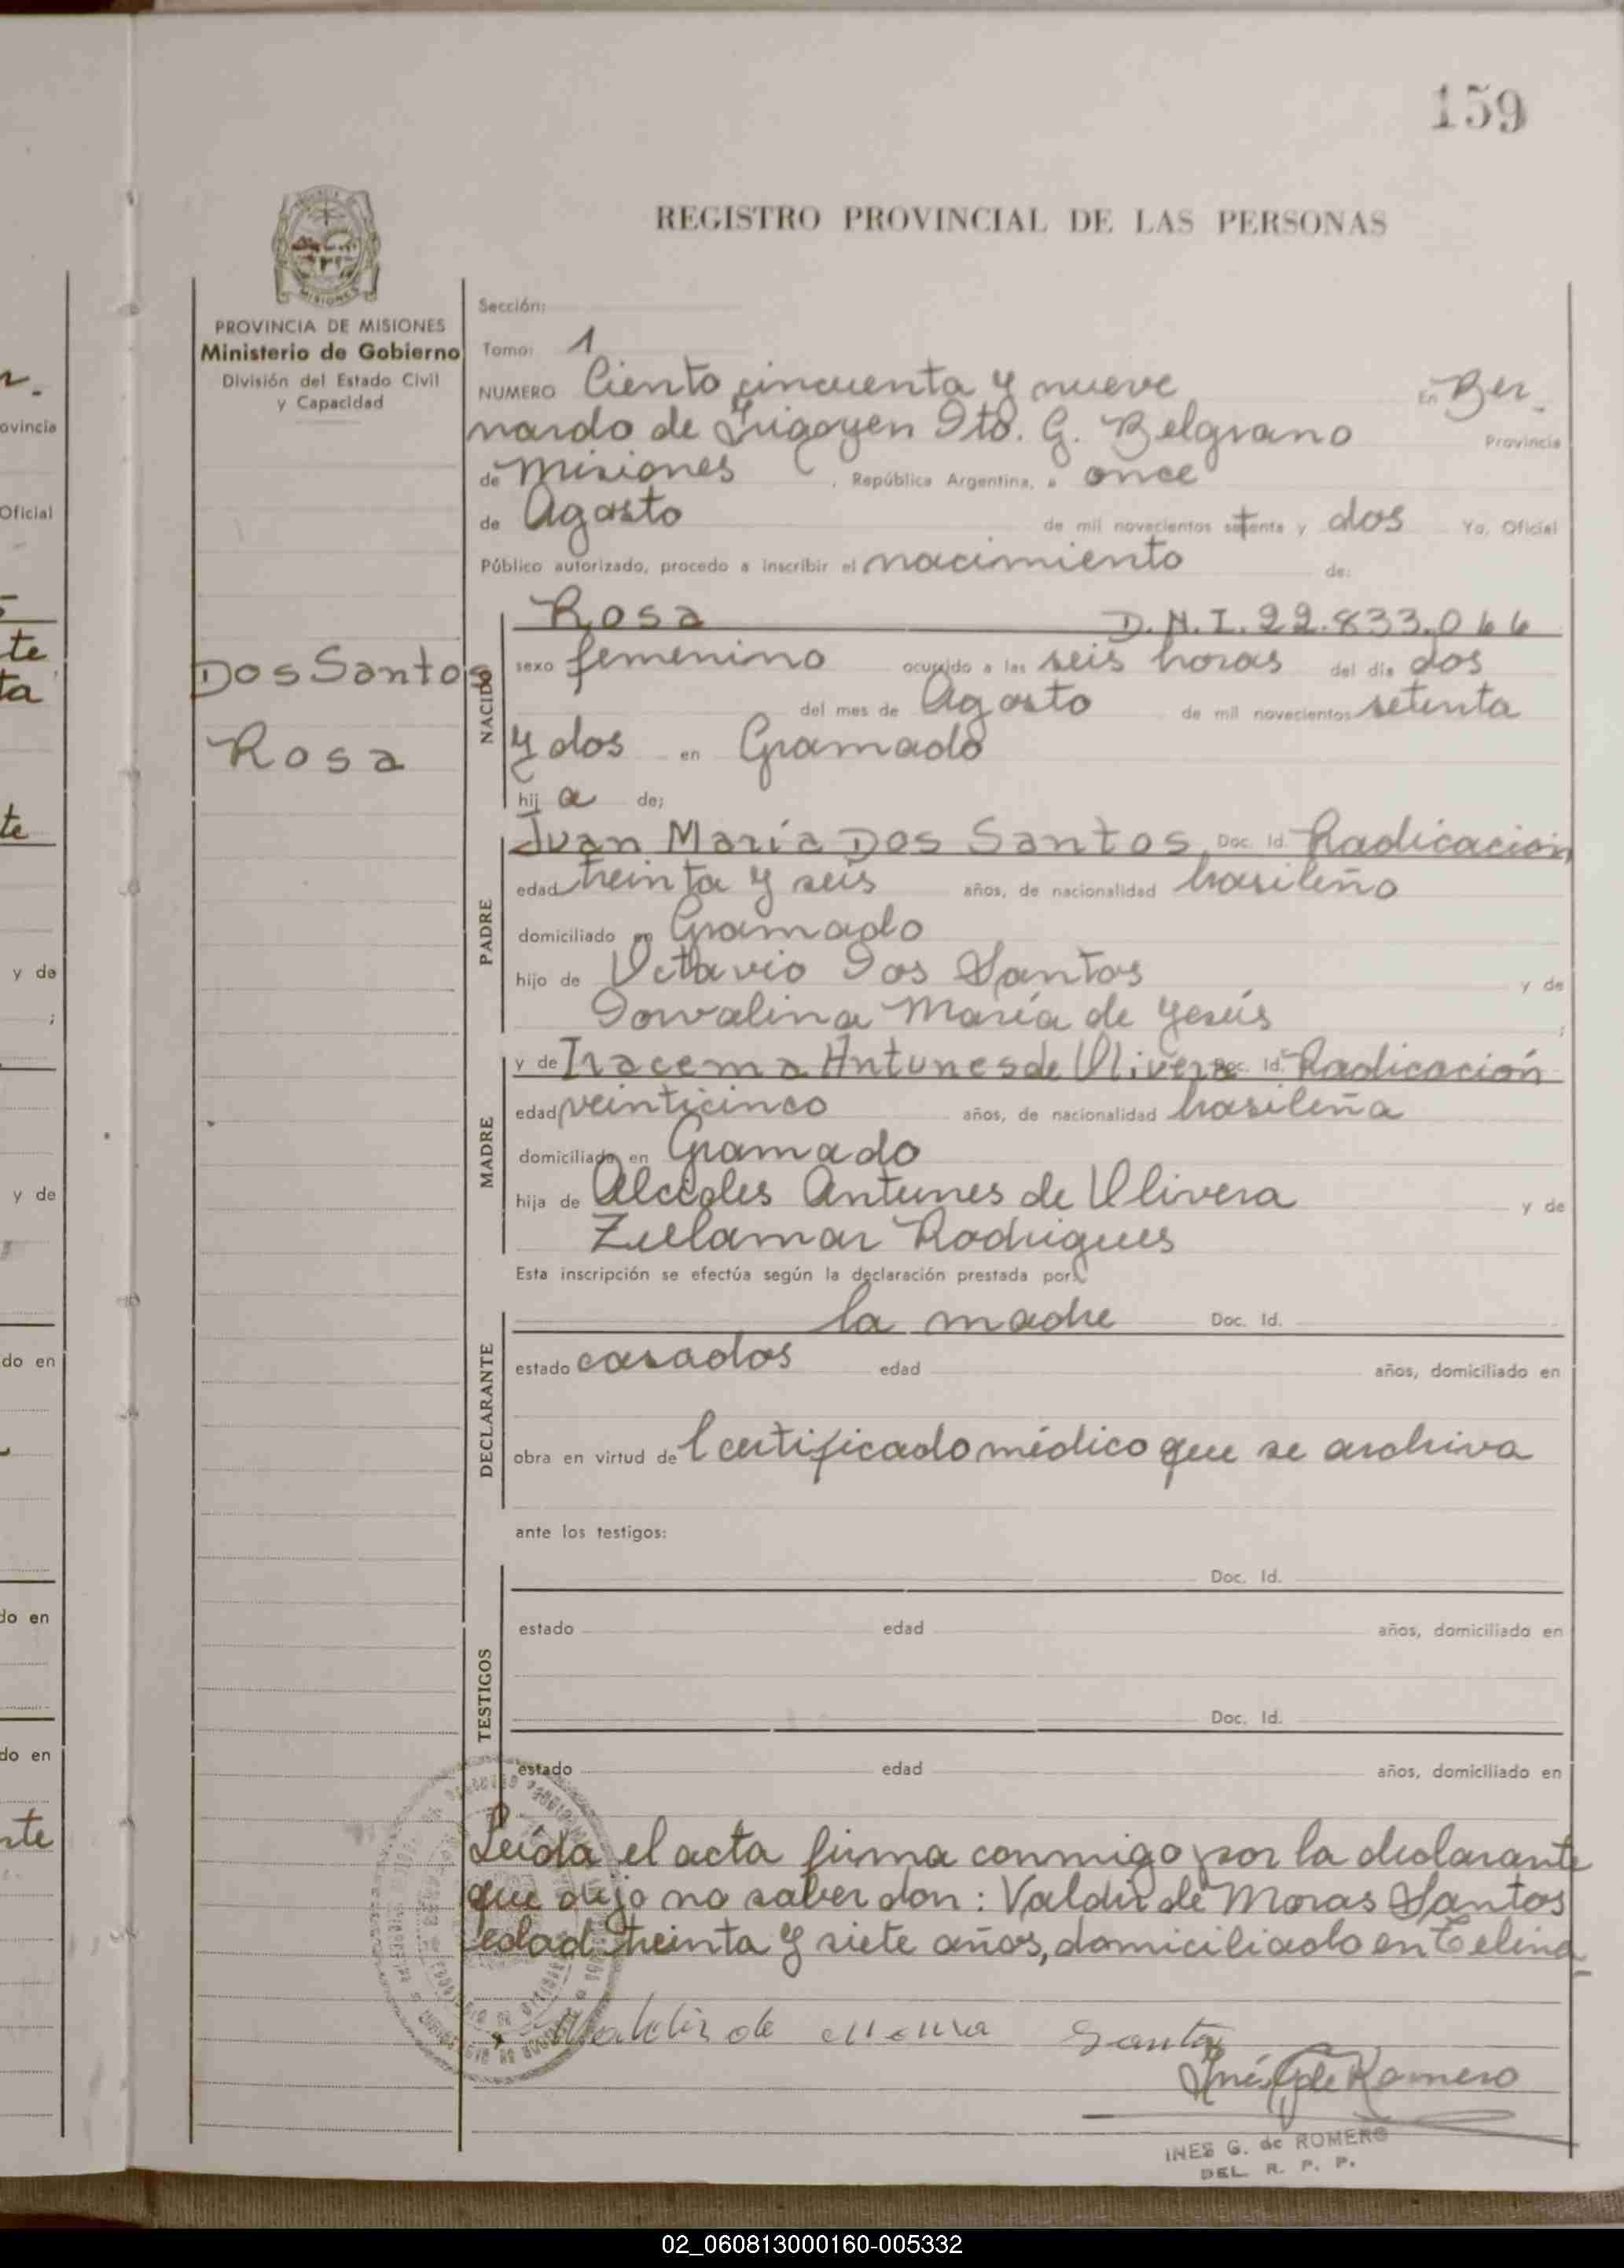 159
REGISTRO PROVINCIAL DE LAS PERSONAS
PROVINCIA DE MISIONES
Ministerio de Gobierno
División del Estado Civil
y Capacidad
Sección:
Tomo: 1
NUMERO Ciento cincuenta y nueve En Ber-
nardo de Irigoyen Dto. G. Belgrano Provincia
de Misiones, República Argentina, a once
de Agosto de mil novecientos setenta y dos Yo, Oficial
Público autorizado, procedo a inscribir el nacimiento de:
Dos Santos
Rosa
NACIDO
Rosa D.N.I. 22.833.066
sexo femenino ocurrido a las seis horas del día dos
del mes de Agosto de mil novecientos setenta
y dos en Gramado
hij a de;
PADRE
Juan María Dos Santos, Doc. Id. Radicación
edad treinta y seis años, de nacionalidad brasileño
domiciliado en Gramado
hijo de Octavio Dos Santos y de
Dorvalina María de Yesús ;
MADRE
y de Iracema Antunes de Olivera Doc. Id. Radicación
edad veinticinco años, de nacionalidad brasileña
domiciliada en Gramado
hija de Alcides Antunes de Olivera y de
Zulamar Rodrigues
Esta inscripción se efectúa según la declaración prestada por:
DECLARANTE
la madre Doc. Id.
estado casados edad años, domiciliado en
obra en virtud de l certificado médico que se archiva
ante los testigos:
TESTIGOS
Doc. Id.
estado edad años, domiciliado en
Doc. Id.
estado edad años, domiciliado en
Leída el acta firma conmigo por la declarante
que dijo no saber don: Valdir de Moras Santos
edad treinta y siete años, domiciliado en
Valdir de Santos
Inés G de Romero
INES G. de ROMERO
DEL. R. P. P.
02_060813000160-005332